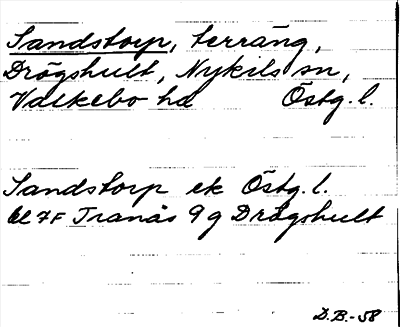 Sandstorp, terräng,
Drögshult, Nykils sn,
Valkebo hd Östg. l.
Sandstorp ek Östg. l.
bl 7F Tranås 9g Drögshult
D.B.-58